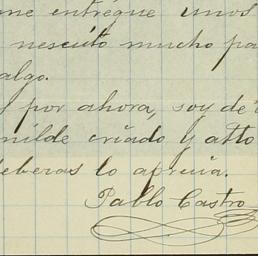 me entregue unos
nescuto mucho pa
algo.
por ahora, soy de
milde criado y atto
deberas lo aprecia.
Pablo Castro